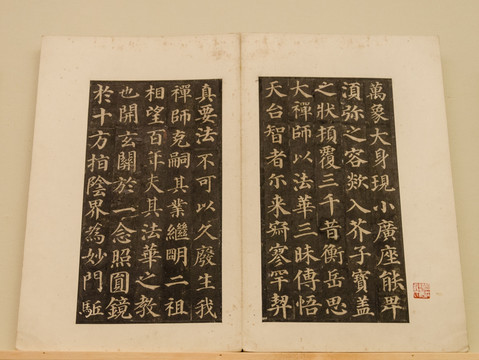 萬象大身現小廣座能卑
湏弥之容欻入芥子寶盖
之狀頓覆三千昔衡岳思
大禪師以法華三昧傳悟
天台智者尔来寂寥罕契
真要法不可以久廢生我
禪師克嗣其業繼明二祖
相望百年夫其法華之教
也開玄關於一念照圓鏡
於十方指陰界為妙門駈